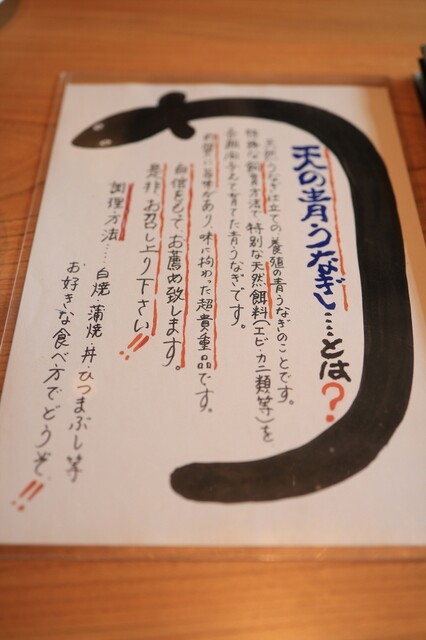 天の青うなぎ…とは?
天然うなぎ仕立ての養殖の青うなぎのことです。
特殊な飼育方法で特別な天然餌料(エビ・カニ類等)を
長期店予えて育てた青うなぎです。
肉質に旨味があり、味に拘わった超貴重品です。
自信をもってお薦め致します。
是非、お召し上り下さい!!
調理方法……白焼・蒲焼・丼・ひつまぶし等
お好きな食べ方でどうぞ!!